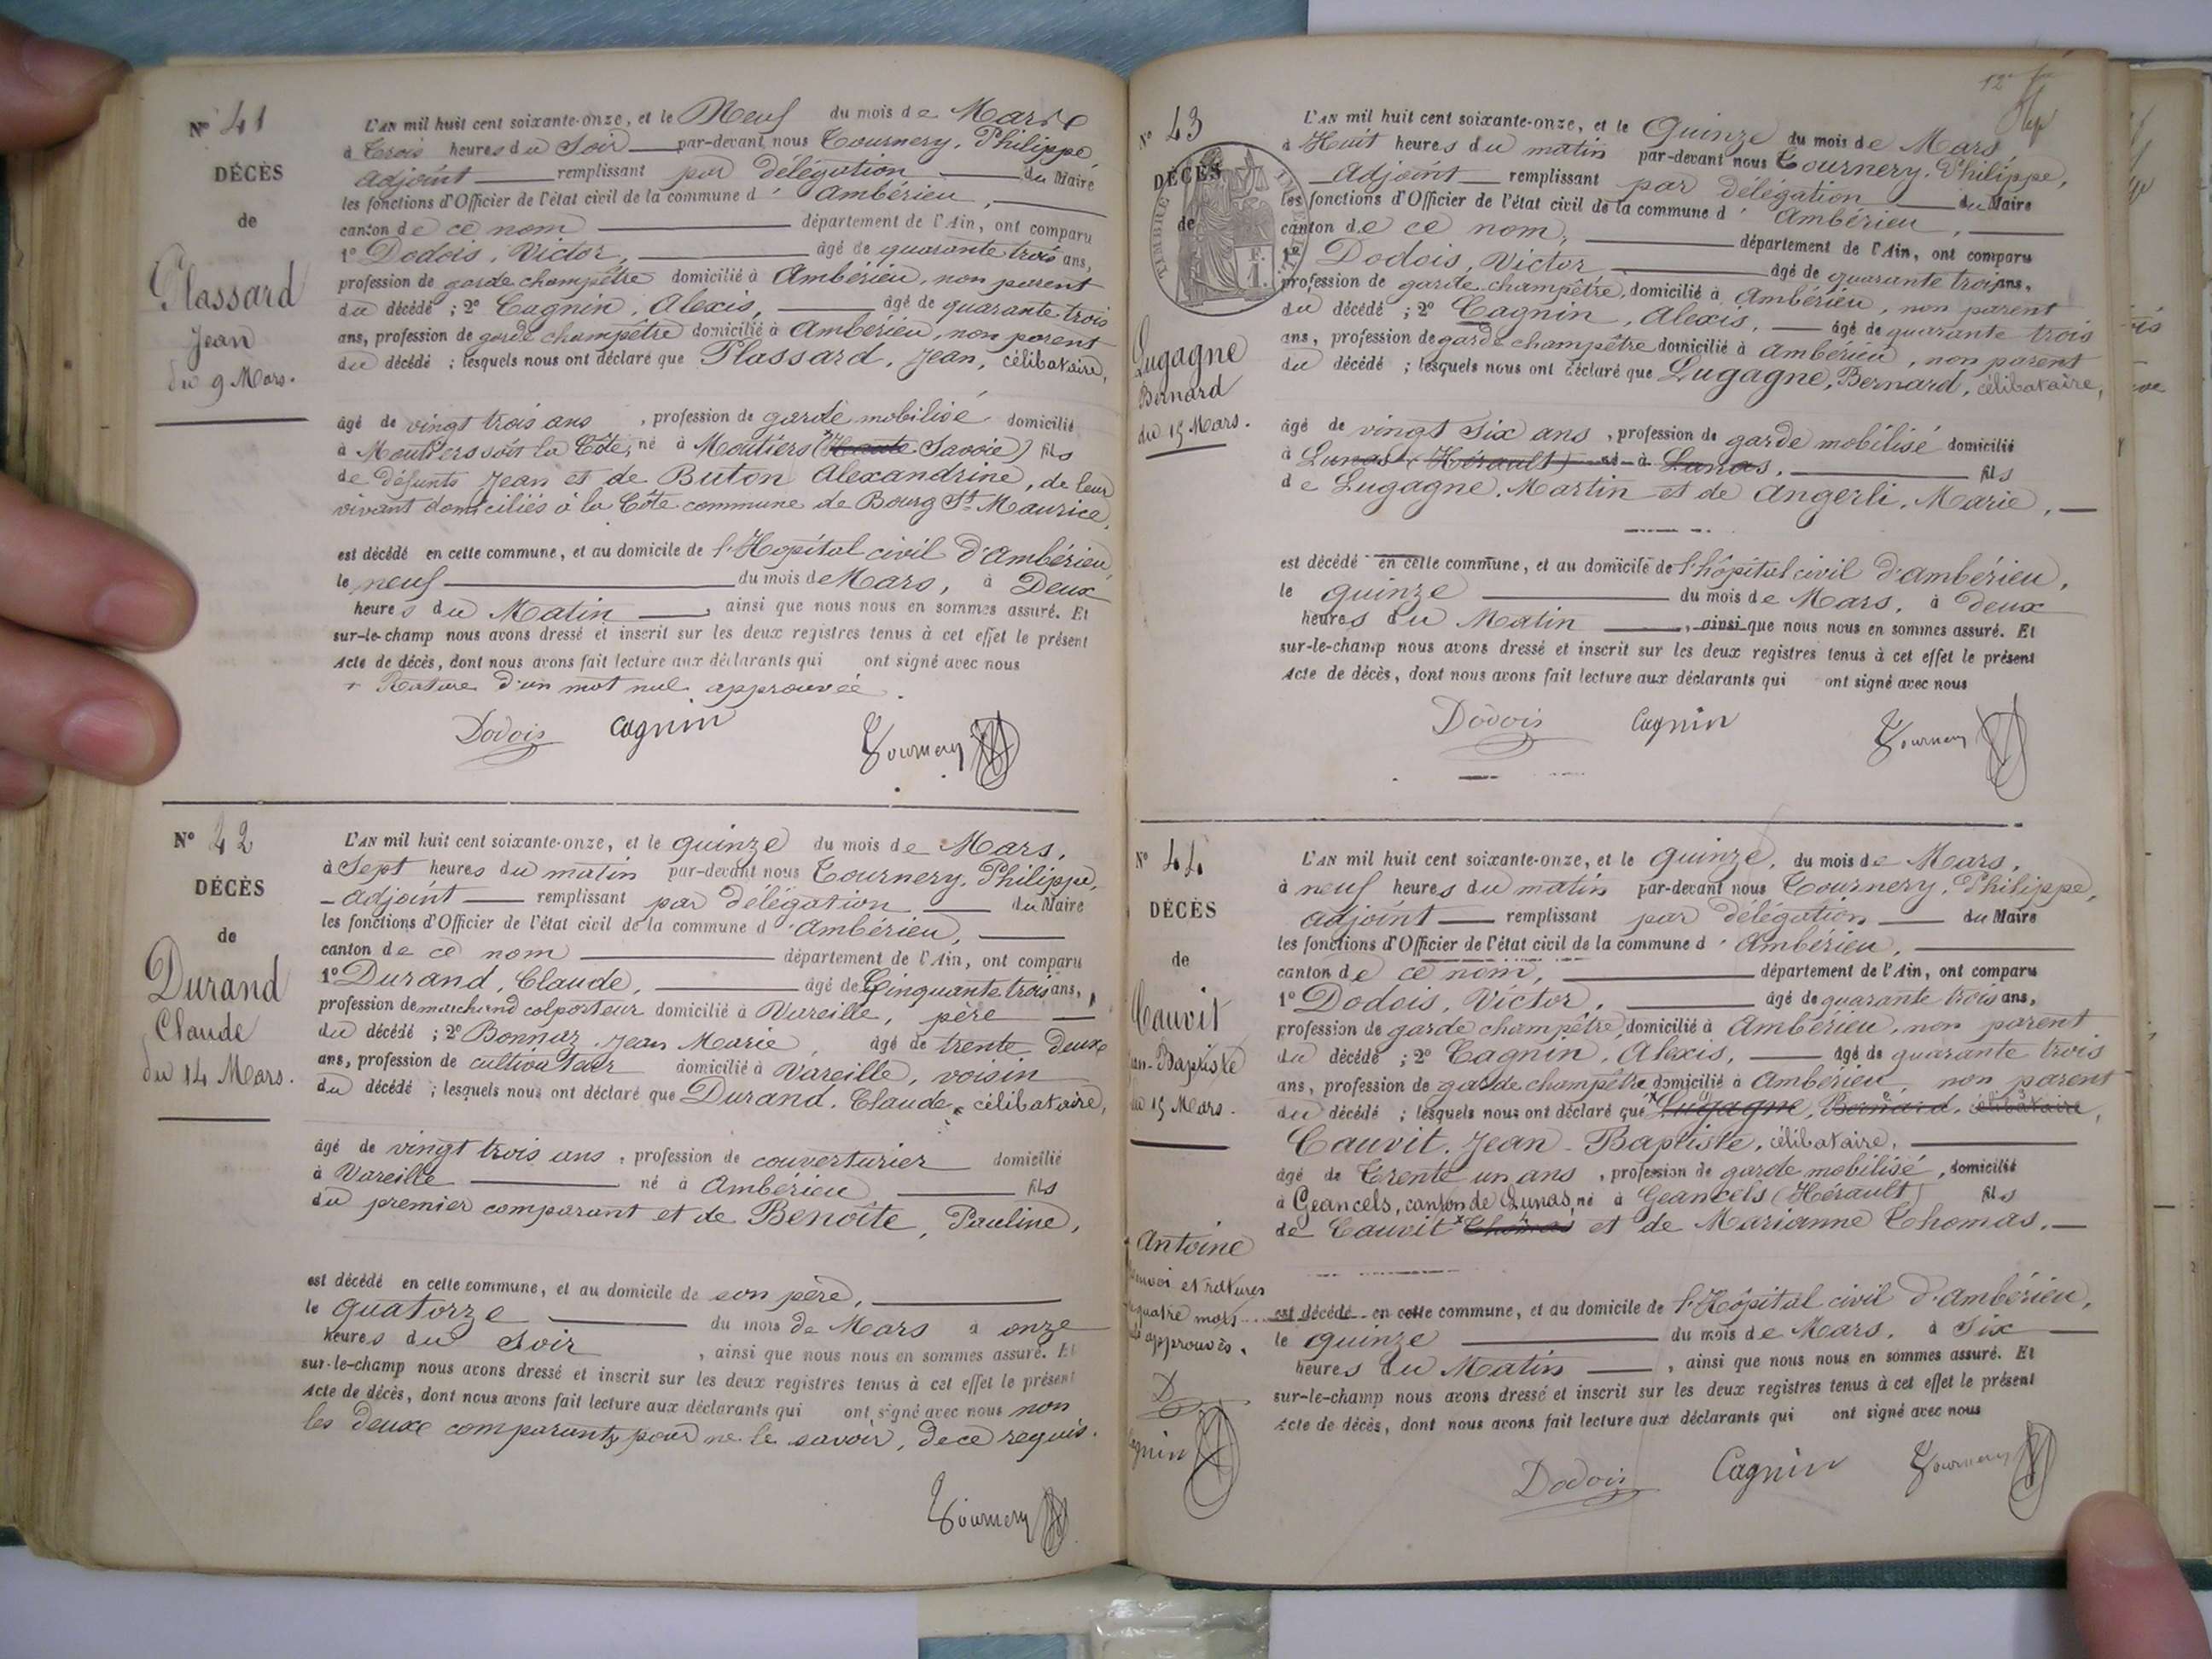 Nº 41
DÉCÈS
de
Plassard
Jean
du 9 Mars.
L'AN mil huit cent soixante-onze, et le Neuf du mois de Mars
à Trois heures du Soir par-devant nous Tournery, Philippe,
adjoint remplissant par délégation du Maire
les fonctions d'Officier de l'état civil de la commune d'Ambérieu,
canton de ce nom département de l'Ain, ont comparu
1º Dodois, Victor, âgé de quarante trois ans,
profession de garde champêtre domicilié à Ambérieu, non parent
du décédé ; 2º Cagnin, Alexis, âgé de quarante trois
ans, profession de garde champêtre domicilié à Ambérieu, non parent
du décédé ; lesquels nous ont déclaré que Plassard, Jean, célibataire,
âgé de vingt trois ans, profession de garde mobilisé domicilié
à Moutiers sous la Côte, né à Moutiers (Haute Savoie) fils
de défunts Jean et de Buton Alexandrine, de leur
vivant domiciliés à la Côte commune de Bourg St Maurice,
est décédé en cette commune, et au domicile de l'Hopital civil d'Ambérieu
le neuf du mois de Mars, à Deux
heures du Matin, ainsi que nous nous en sommes assuré. Et
sur-le-champ nous avons dressé et inscrit sur les deux registres tenus à cet effet le présent
Acte de décès, dont nous avons fait lecture aux déclarants qui ont signé avec nous
+ Rature d'un mot nul approuvée.
Dodois Cagnin Tournery
Nº 42
DÉCÈS
de
Durand
Claude
du 14 Mars.
L'AN mil huit cent soixante-onze, et le quinze du mois de Mars,
à Sept heures du matin par-devant nous Tournery, Philippe,
adjoint remplissant par délégation du Maire
les fonctions d'Officier de l'état civil de la commune d'Ambérieu,
canton de ce nom département de l'Ain, ont comparu
1º Durand, Claude, âgé de Cinquante trois ans,
profession de marchand colporteur domicilié à Vareille, père
du décédé ; 2º Bonnaz Jean Marie, âgé de trente deux
ans, profession de cultivateur domicilié à Vareille, voisin
du décédé ; lesquels nous ont déclaré que Durand, Claude, célibataire,
âgé de vingt trois ans, profession de couverturier domicilié
à Vareille né à Ambérieu fils
du premier comparant et de Benoîte, Pauline,
est décédé en cette commune, et au domicile de son père,
le quatorze du mois de Mars à onze
heures du Soir, ainsi que nous nous en sommes assuré. Et
sur-le-champ nous avons dressé et inscrit sur les deux registres tenus à cet effet le présent
Acte de décès, dont nous avons fait lecture aux déclarants qui ont signé avec nous non
les deux comparants pour ne le savoir, de ce requis.
Tournery
12e
Nº 43
DÉCÈS
de
Lugagne
Bernard
du 15 Mars.
L'AN mil huit cent soixante-onze, et le Quinze du mois de Mars
à Huit heures du matin par-devant nous Tournery, Philippe,
Adjoint remplissant par délégation du Maire
les fonctions d'Officier de l'état civil de la commune d'Ambérieu,
canton de ce nom, département de l'Ain, ont comparu
1º Dodois, Victor âgé de quarante trois ans,
profession de garde champêtre, domicilié à Ambérieu, non parent
du décédé ; 2º Cagnin, Alexis, âgé de quarante trois
ans, profession de garde champêtre domicilié à Ambérieu, non parent
du décédé ; lesquels nous ont déclaré que Lugagne, Bernard, célibataire,
âgé de vingt Six ans, profession de garde mobilisé domicilié
à Lunas (Hérault) né à Lunas, fils
de Lugagne, Martin et de Angerli, Marie,
est décédé en cette commune, et au domicile de l'hôpital civil d'ambérieu,
le quinze du mois de Mars, à deux
heures du Matin, ainsi que nous nous en sommes assuré. Et
sur-le-champ nous avons dressé et inscrit sur les deux registres tenus à cet effet le présent
Acte de décès, dont nous avons fait lecture aux déclarants qui ont signé avec nous
Dodois Cagnin Tournery
Nº 44
DÉCÈS
de
Cauvit
Jean-Baptiste
du 15 Mars.
L'AN mil huit cent soixante-onze, et le quinze, du mois de Mars,
à neuf heures du matin par-devant nous Tournery, Philippe,
adjoint remplissant par délégation du Maire
les fonctions d'Officier de l'état civil de la commune d'Ambérieu,
canton de ce nom, département de l'Ain, ont comparu
1º Dodois, Victor, âgé de quarante trois ans,
profession de garde champêtre, domicilié à Ambérieu, non parent
du décédé ; 2º Cagnin, Alexis, âgé de quarante trois
ans, profession de garde champêtre domicilié à Ambérieu, non parent
du décédé ; lesquels nous ont déclaré que Lugagne, Bernard, célibataire,
Cauvit, Jean-Baptiste, célibataire,
âgé de Trente un ans, profession de garde mobilisé, domicilié
à Geancels, canton de Lunas, né à Geancels (Hérault) fils
de Cauvit Thomas et de Marianne Thomas.
Antoine
renvoi et ratures
quatre mots
approuvés.
D
Cagnin
est décédé en cette commune, et au domicile de l'Hôpital civil d'Ambérieu,
le quinze du mois de Mars, à Six
heures du Matin, ainsi que nous nous en sommes assuré. Et
sur-le-champ nous avons dressé et inscrit sur les deux registres tenus à cet effet le présent
Acte de décès, dont nous avons fait lecture aux déclarants qui ont signé avec nous
Dodois Cagnin Tournery